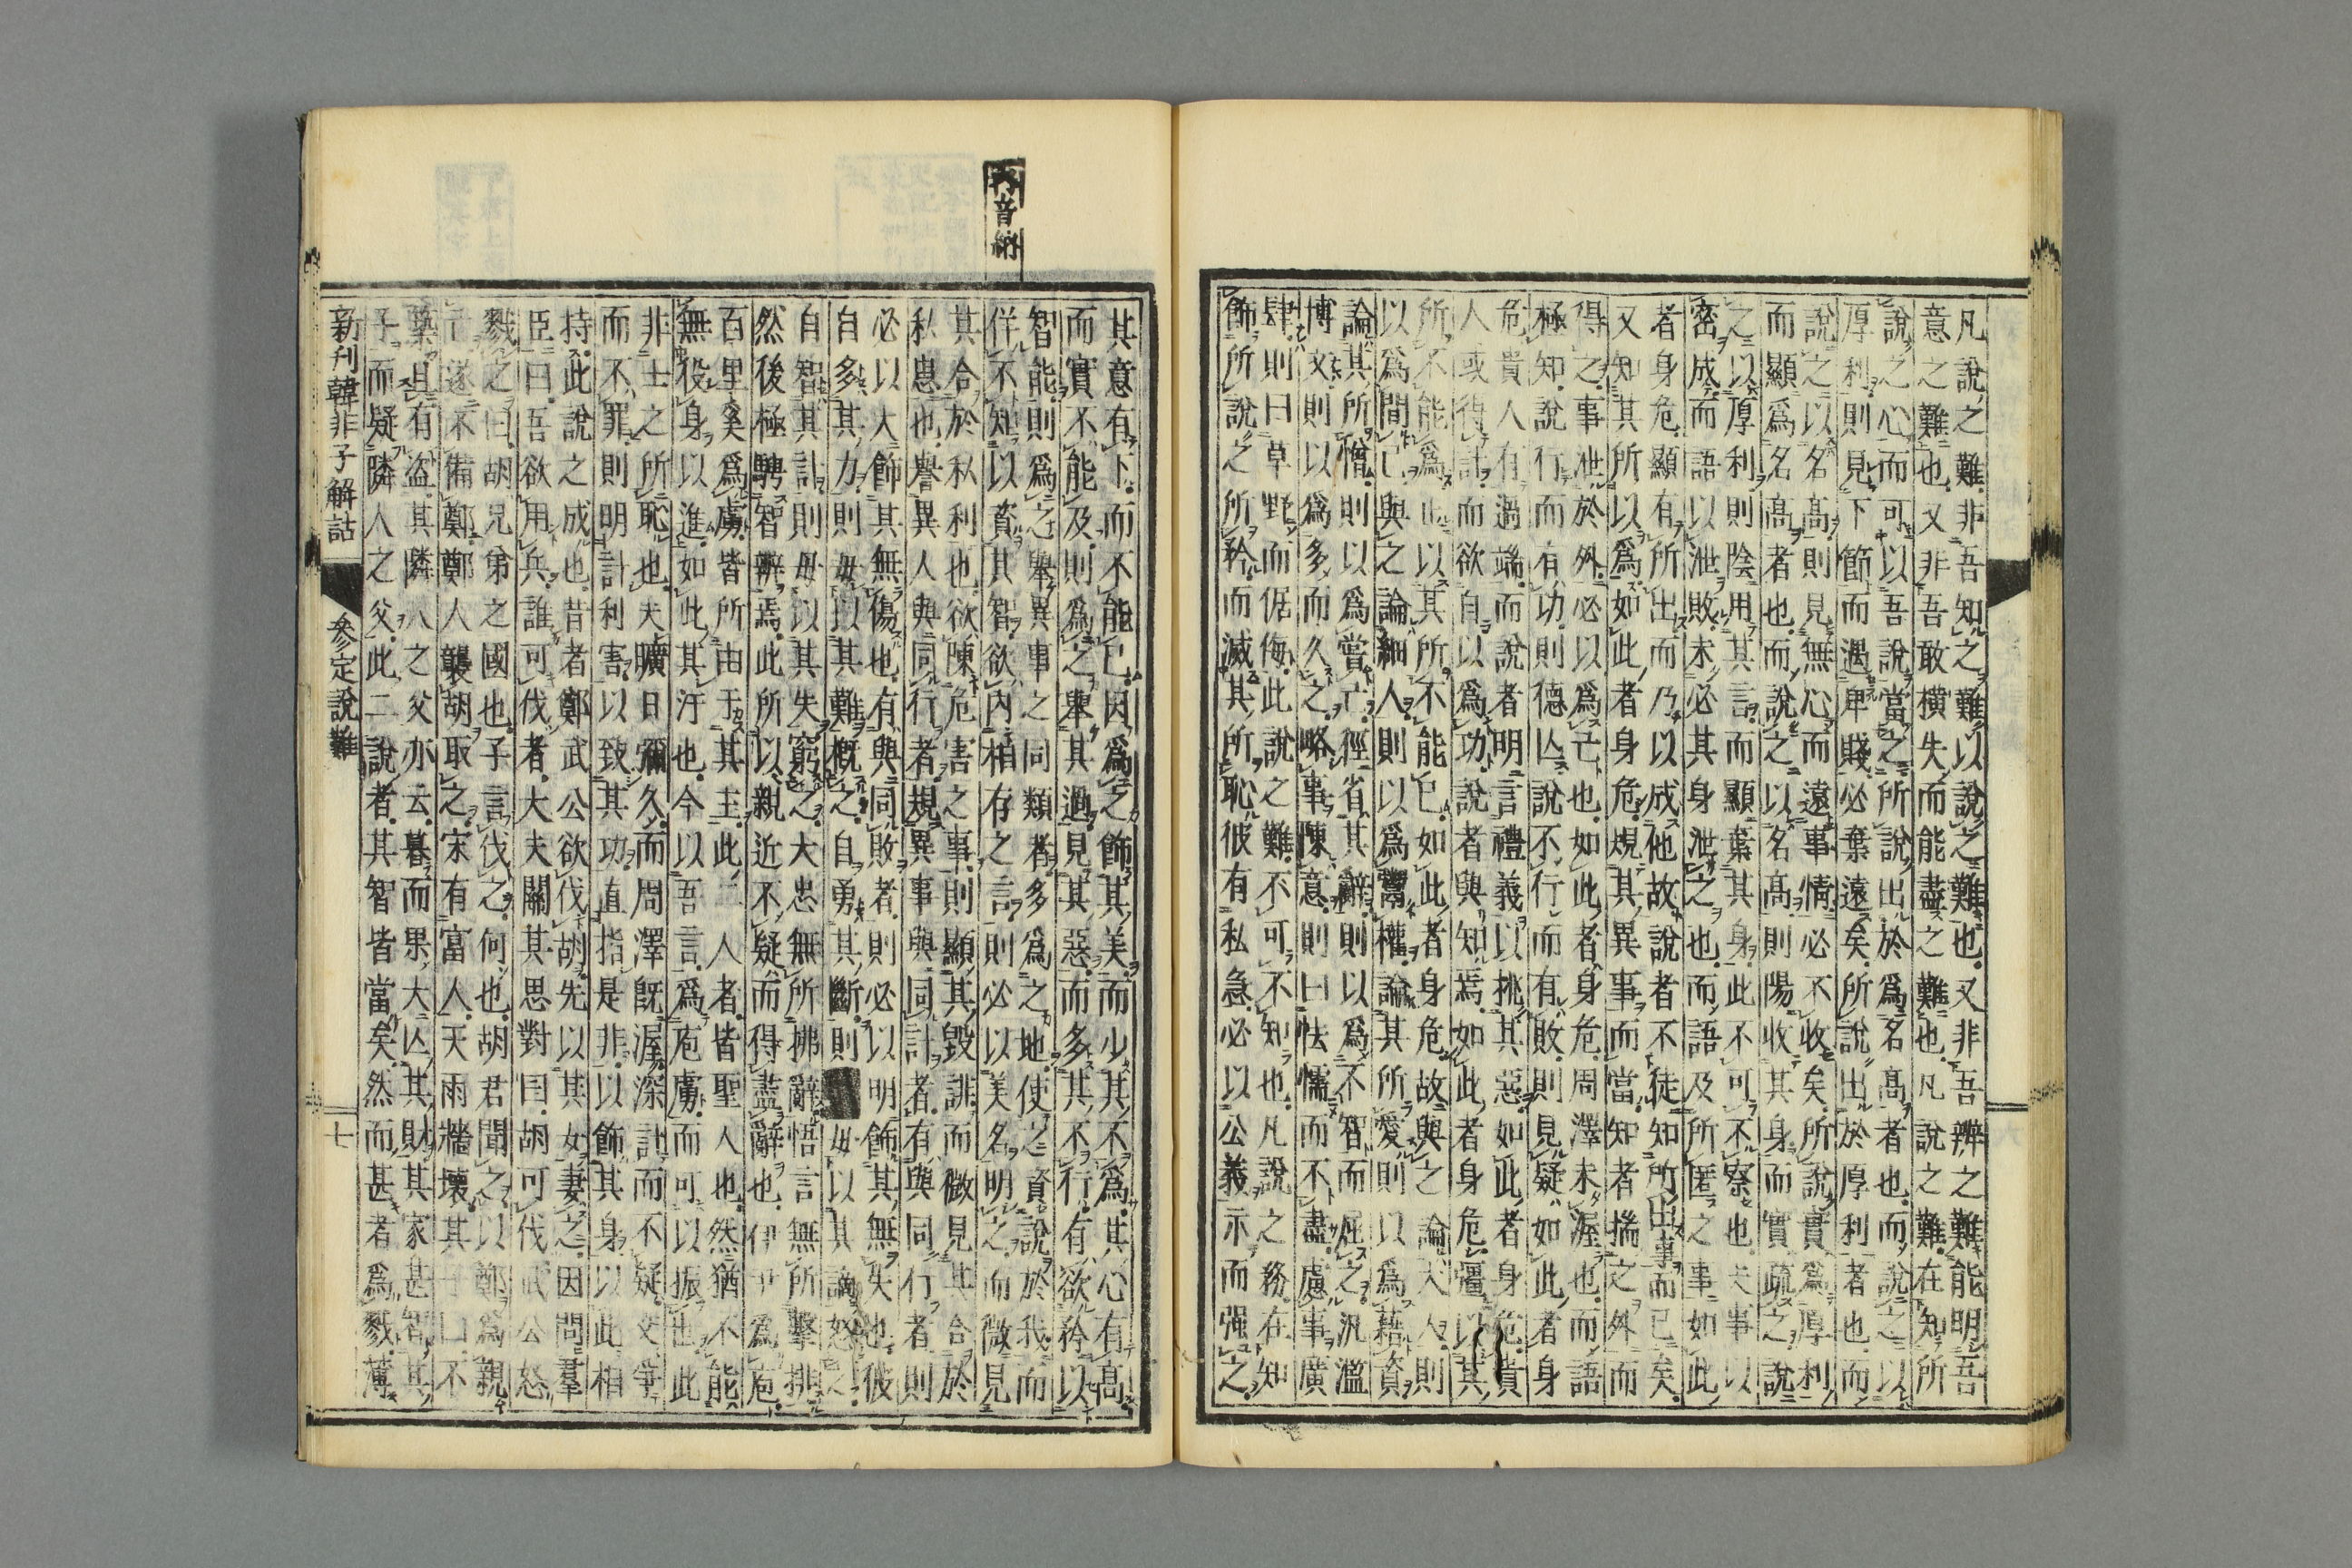 凡説之難非吾知之難以説之難也又非吾辨之難能明吾
意之難也又非吾敢横失而能盡之難也凡説之難在知所
説之心而可以吾説當之所説出於爲名髙者也而説之以
厚利則見下節而遇卑賤必棄遠矣所説出於厚利者也而
説之以名髙則見無心而遠事情必不收矣所説實爲厚利
而顯爲名髙者也而説之以名髙則陽收其身而實疏之説
之以厚利則陰用其言而顯棄其身此不可不察也夫事以
密成而語以泄敗未必其身泄之也而語及所匿之事如此
者身危顯有所出而乃以成他故説者不徒知所出事而已矣
又知其所以爲如此者身危規異事而當知者揣之外而
得之事泄於外必以爲亡也如此者身危周澤未渥也而語
極知説行而有功則德亾説不行而有敗則見疑如此者身
危貴人有過端而説者明言禮義以挑其惡如此者身危貴
人或得計而欲自以爲功説者與知焉如此者身危彊以其
所不能爲止以其所不能已如此者身危故與之論大人則
以爲間已與之論細人則以爲鬻權論其所愛則以爲藉資
論其所憎則以爲嘗亡徑省其辭則以爲不智而屈之汎濫
博文則以爲多而久之略事陳意則曰怯懦而不盡慮事廣
肆則曰草野而倨侮此説之難不可不知也凡説之務在知
飾所説之所矜而滅其所恥彼有私急必以公義示而强之
内音納
其意有下而不能已因爲之飾其美而少其不爲其心有髙
而實不能及則爲之舉其過見其惡而多其不行有欲矜以
智能則爲之舉異事之同類者多爲之地使之資説於我而
佯不知以資其智欲内相存之言則必以美名明之而微見
其合於私利也欲陳危害之事則顯其毀誹而微見其合於
私患也譽異人與同行者規異事與同計者有與同行者則
必以大飾其無傷也有與同敗者則必以明飾其無失也彼
自多其力則毋以其難概之自勇其斷則毋以其謫怒之
自智其計則毋以其失窮之大忠無所拂辭悟言無所擊排
然後極騁智辨焉此所以親近不疑而得盡辭也伊尹爲庖
百里奚爲虜皆所由于其主此二人者皆聖人也然猶不能
無役身以進如此其汙也今以吾言爲庖虜而可以振世此
非士之所恥也夫曠日彌久而周澤既渥深計而不疑交爭
而不罪則明計利害以致其功直指是非以飾其身以此相
持此説之成也昔者鄭武公欲伐胡先以其女妻之因問羣
臣曰吾欲用兵誰可伐者大夫關其思對曰胡可伐武公怒
戮之曰胡兄弟之國也子言伐之何也胡君聞之以鄭爲親
亡遂不備鄭鄭人襲胡取之宋有富人天雨牆壞其子曰不
築且有盗其隣人之父亦云暮而果大亾其財其家甚智其
子而疑隣人之父此二説者其智皆當矣然而甚者爲戮薄
新刊韓非子解詁　參定説難　七